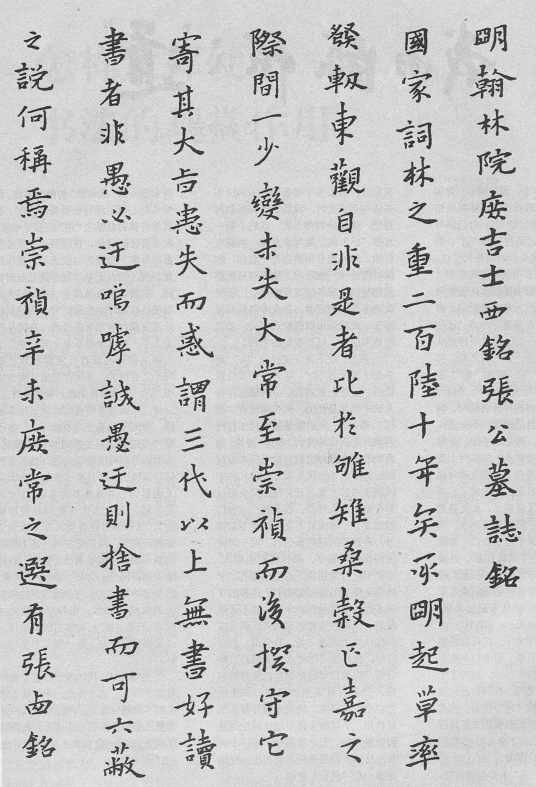 明翰林院庶吉士西銘張公墓誌銘
國家詞林之重二百陸十年矣承明起草率
發軔東觀自非是者比於雊雉桑穀已嘉之
際間一少變未失大常至崇禎而後撰守它
寄其大旨患失而惑謂三代以上無書好讀
書者非愚必迂喑嘑誠愚迂則捨書而可六蔽
之說何稱焉崇禎辛未庶常之選有張西銘